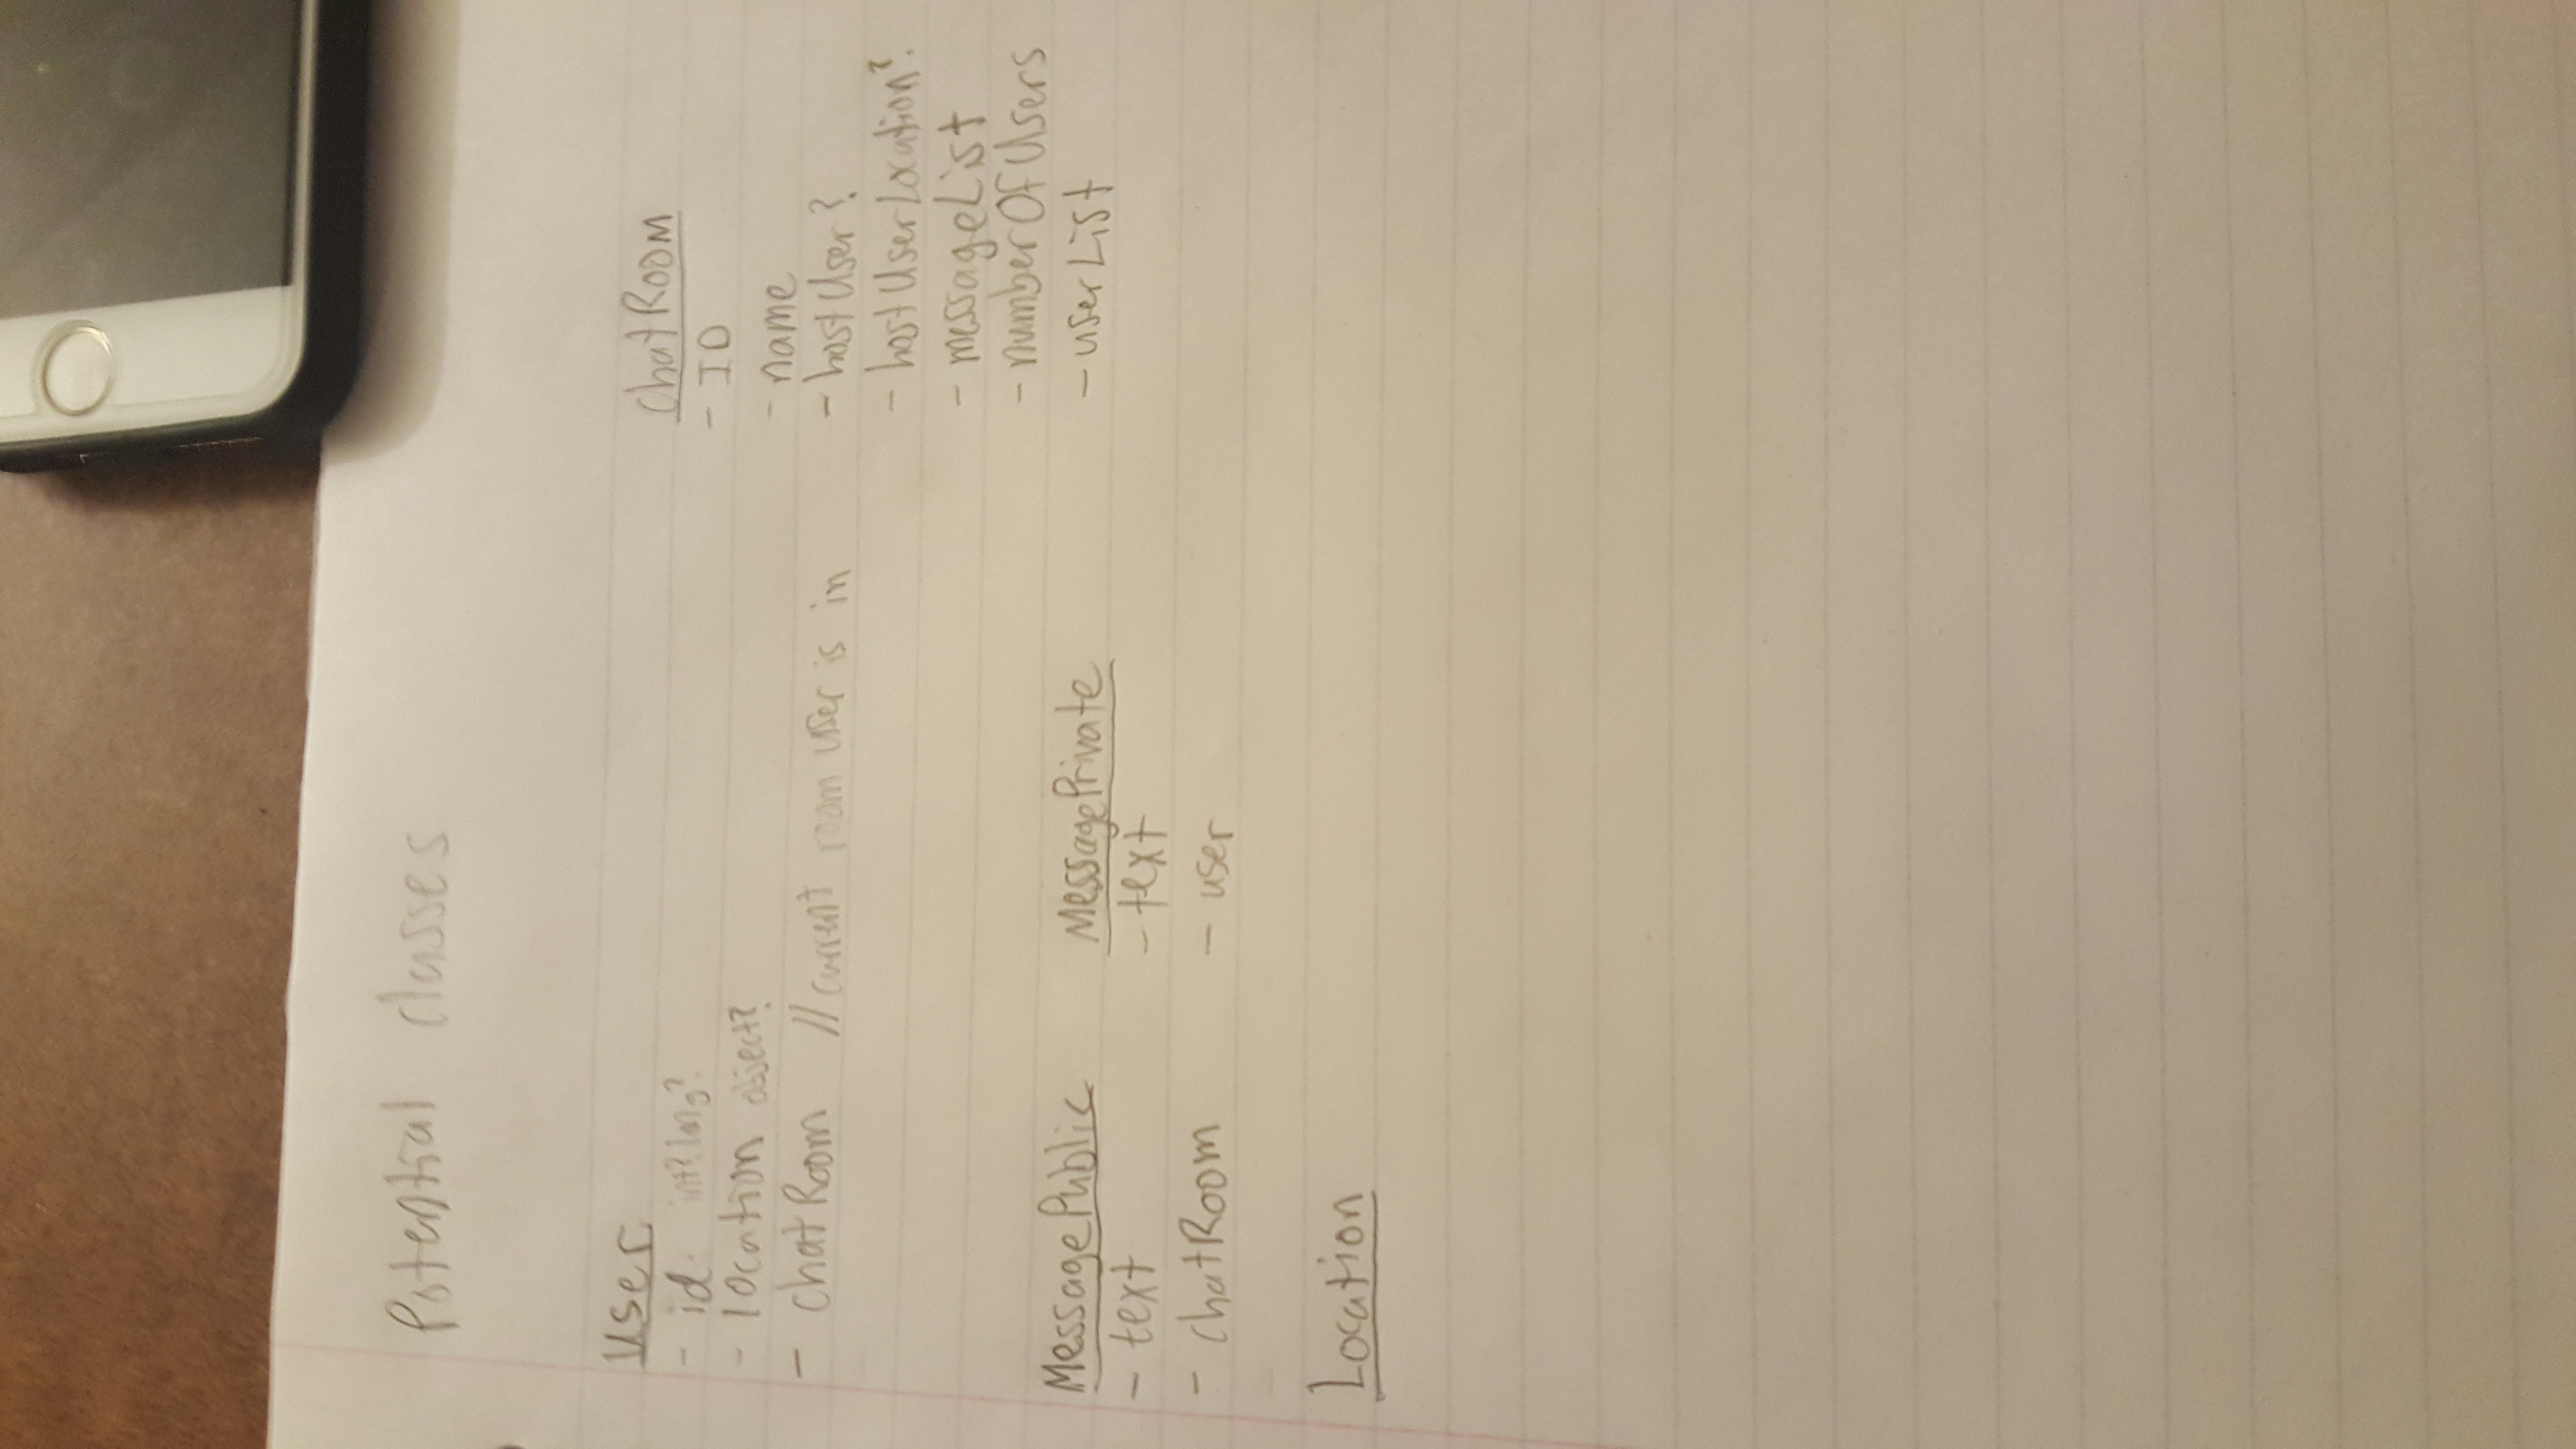 Potential classes
User
- id int? long?
- location object?
- chatRoom // current room user is in
ChatRoom
- ID
- name
- hostUser?
- hostUserLocation?
- messageList
- numberOfUsers
- userList
MessagePublic
- text
- chatRoom
MessagePrivate
- text
- user
Location